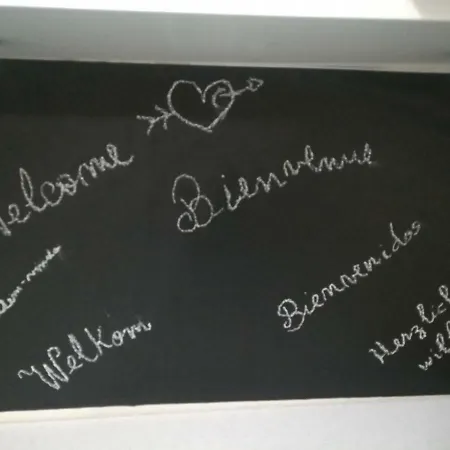 Welcome
Bienvenue
Bienvenidos
Welkom
Herzlich
will